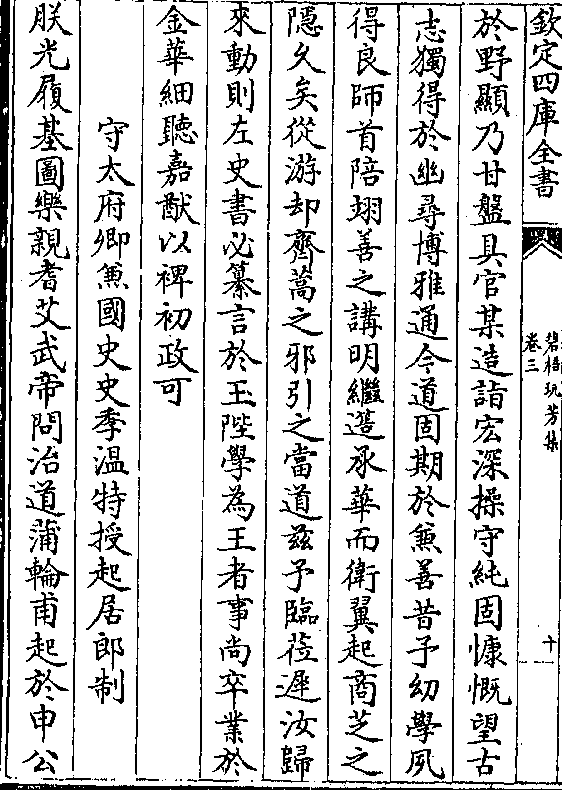 欽定四庫全書
碧梧玩芳集
卷三
十
於野顯乃甘盤具官某造詣宏深操守純固慷慨望古
志獨得於幽尋博雅通今道固期於兼善昔予幼學夙
得良師首陪翊善之講明繼選承華而衛翼起商芝之
隱久矣從游却齊蒿之邪引之當道兹予臨莅遲汝歸
來動則左史書必纂言於玉陛學為王者事尚卒業於
金華細聽嘉猷以裨初政可
守太府卿兼國史史季溫特授起居郎制
朕光履基圖樂親耆艾武帝問治道蒲輪甫起於申公